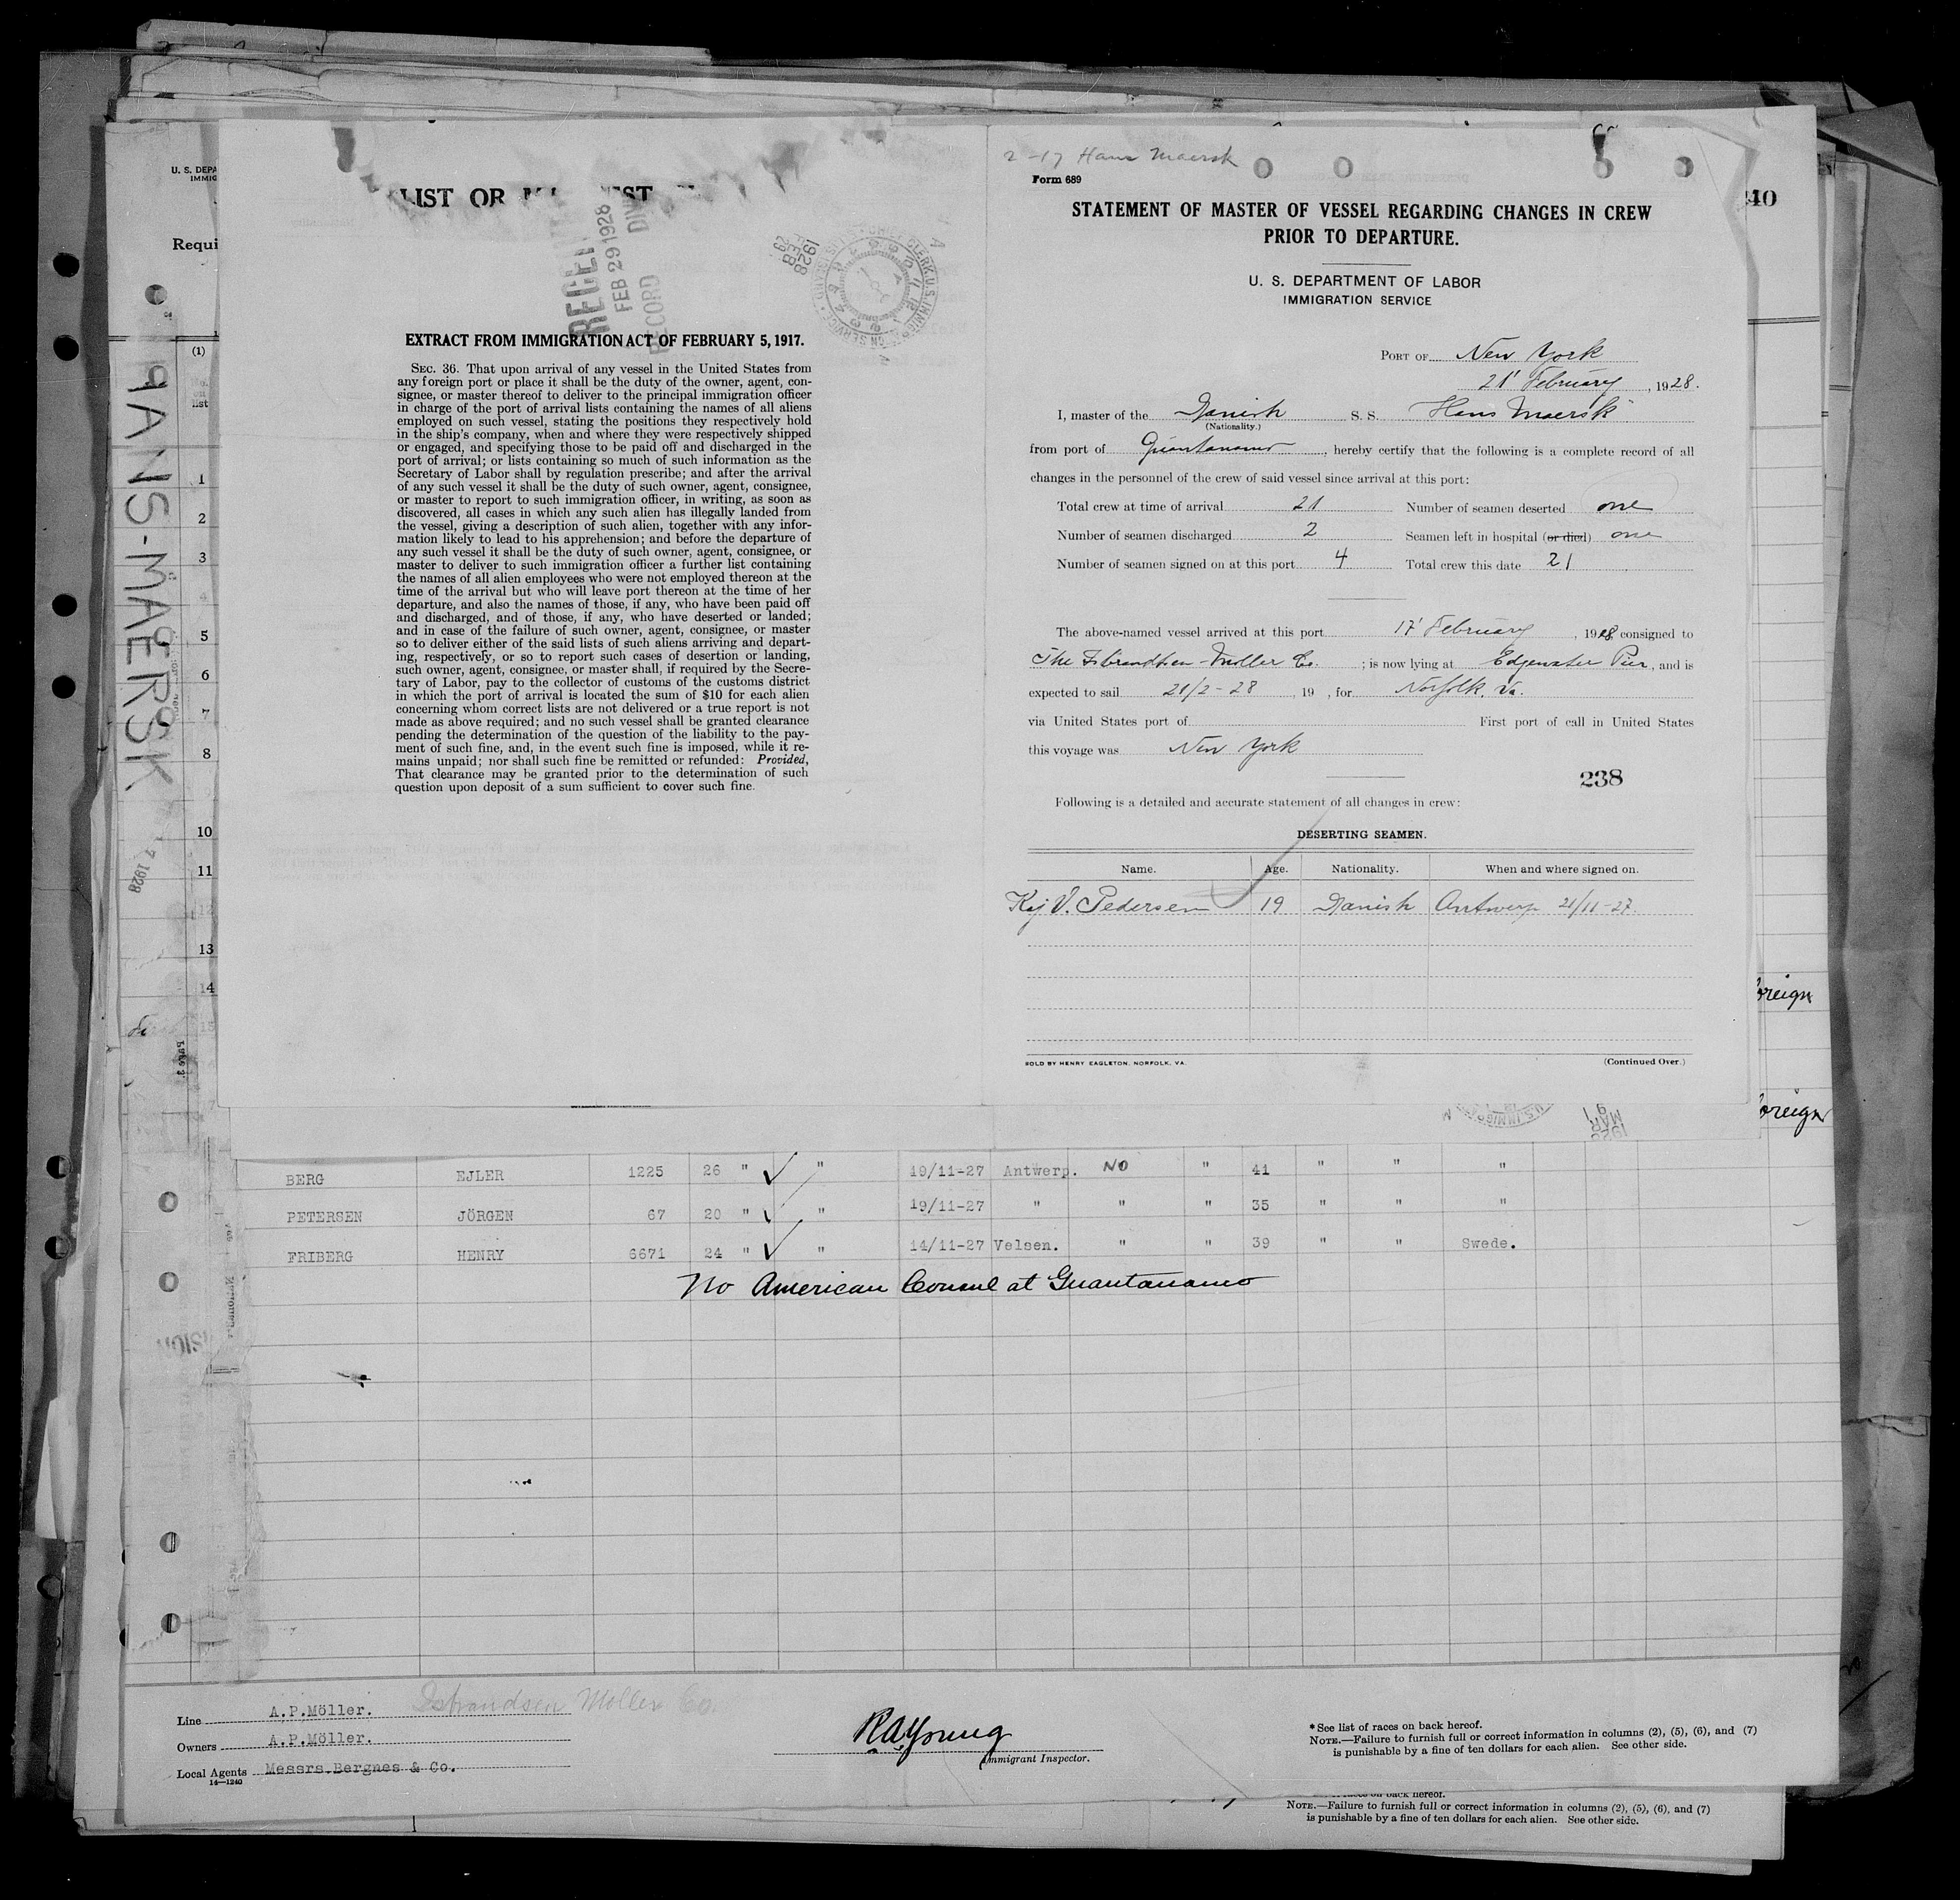 U. S. DEPA
IMMIG
Requi
LIST OR
RECEI
FEB 29 1928
RECORD DIV
1928
FEB
29
EXTRACT FROM IMMIGRATION ACT OF FEBRUARY 5, 1917.
SEC. 36. That upon arrival of any vessel in the United States from
any foreign port or place it shall be the duty of the owner, agent, con-
signee, or master thereof to deliver to the principal immigration officer
in charge of the port of arrival lists containing the names of all aliens
employed on such vessel, stating the positions they respectively hold
in the ship's company, when and where they were respectively shipped
or engaged, and specifying those to be paid off and discharged in the
port of arrival; or lists containing so much of such information as the
Secretary of Labor shall by regulation prescribe; and after the arrival
of any such vessel it shall be the duty of such owner, agent, consignee,
or master to report to such immigration officer, in writing, as soon as
discovered, all cases in which any such alien has illegally landed from
the vessel, giving a description of such alien, together with any infor-
mation likely to lead to his apprehension; and before the departure of
any such vessel it shall be the duty of such owner, agent, consignee, or
master to deliver to such immigration officer a further list containing
the names of all alien employees who were not employed thereon at the
time of the arrival but who will leave port thereon at the time of her
departure, and also the names of those, if any, who have been paid off
and discharged, and of those, if any, who have deserted or landed;
and in case of the failure of such owner, agent, consignee, or master
so to deliver either of the said lists of such aliens arriving and depart-
ing, respectively, or so to report such cases of desertion or landing,
such owner, agent, consignee, or master shall, if required by the Secre-
tary of Labor, pay to the collector of customs of the customs district
in which the port of arrival is located the sum of $10 for each alien
concerning whom correct lists are not delivered or a true report is not
made as above required; and no such vessel shall be granted clearance
pending the determination of the question of the liability to the pay-
ment of such fine, and, in the event such fine is imposed, while it re-
mains unpaid; nor shall such fine be remitted or refunded: Provided,
That clearance may be granted prior to the determination of such
question upon deposit of a sum sufficient to cover such fine.
HANS-MAERSK
(1)
list
1
2
3
4
5
6
7
8
10
11
12
13
14
15
2-17 Hans Maersk
Form 689
STATEMENT OF MASTER OF VESSEL REGARDING CHANGES IN CREW
PRIOR TO DEPARTURE.
U. S. DEPARTMENT OF LABOR
IMMIGRATION SERVICE
PORT OF New York
21' February, 1928.
I, master of the Danish S. S. Hans Maersk
(Nationality.)
from port of Guantanamo, hereby certify that the following is a complete record of all
changes in the personnel of the crew of said vessel since arrival at this port:
Total crew at time of arrival 21 Number of seamen deserted one
Number of seamen discharged 2 Seamen left in hospital (or died) one
Number of seamen signed on at this port 4 Total crew this date 21
The above-named vessel arrived at this port 17' February, 1928, consigned to
The Isbrandtsen-Moller Co.; is now lying at Edgewater Pier, and is
expected to sail 21/2-28, 19 , for Norfolk, Va.
via United States port of First port of call in United States
this voyage was New York
238
Following is a detailed and accurate statement of all changes in crew:
DESERTING SEAMEN.
Name. Age. Nationality. When and where signed on.
Kaj V. Pedersen 19 Danish Antwerp 21/11-27
SOLD BY HENRY EAGLETON, NORFOLK, VA. (Continued Over.)
40
oreign
oreign
BERG EJLER 1225 26 " " 19/11-27 Antwerp. NO " 41 " " "
PETERSEN JÖRGEN 67 20 " " 19/11-27 " " " 35 " " "
FRIBERG HENRY 6671 24 " " 14/11-27 Velsen. " " 39 " " Swede.
No American Consul at Guantanamo
Line A.P.Möller. Isbrandsen Moller Co.
Owners A.P.Möller.
Local Agents Messrs.Bergnes & Co.
14—1240
R.A. Young
Immigrant Inspector.
*See list of races on back hereof.
NOTE.—Failure to furnish full or correct information in columns (2), (5), (6), and (7)
is punishable by a fine of ten dollars for each alien. See other side.
NOTE.—Failure to furnish full or correct information in columns (2), (5), (6), and (7)
is punishable by a fine of ten dollars for each alien. See other side.